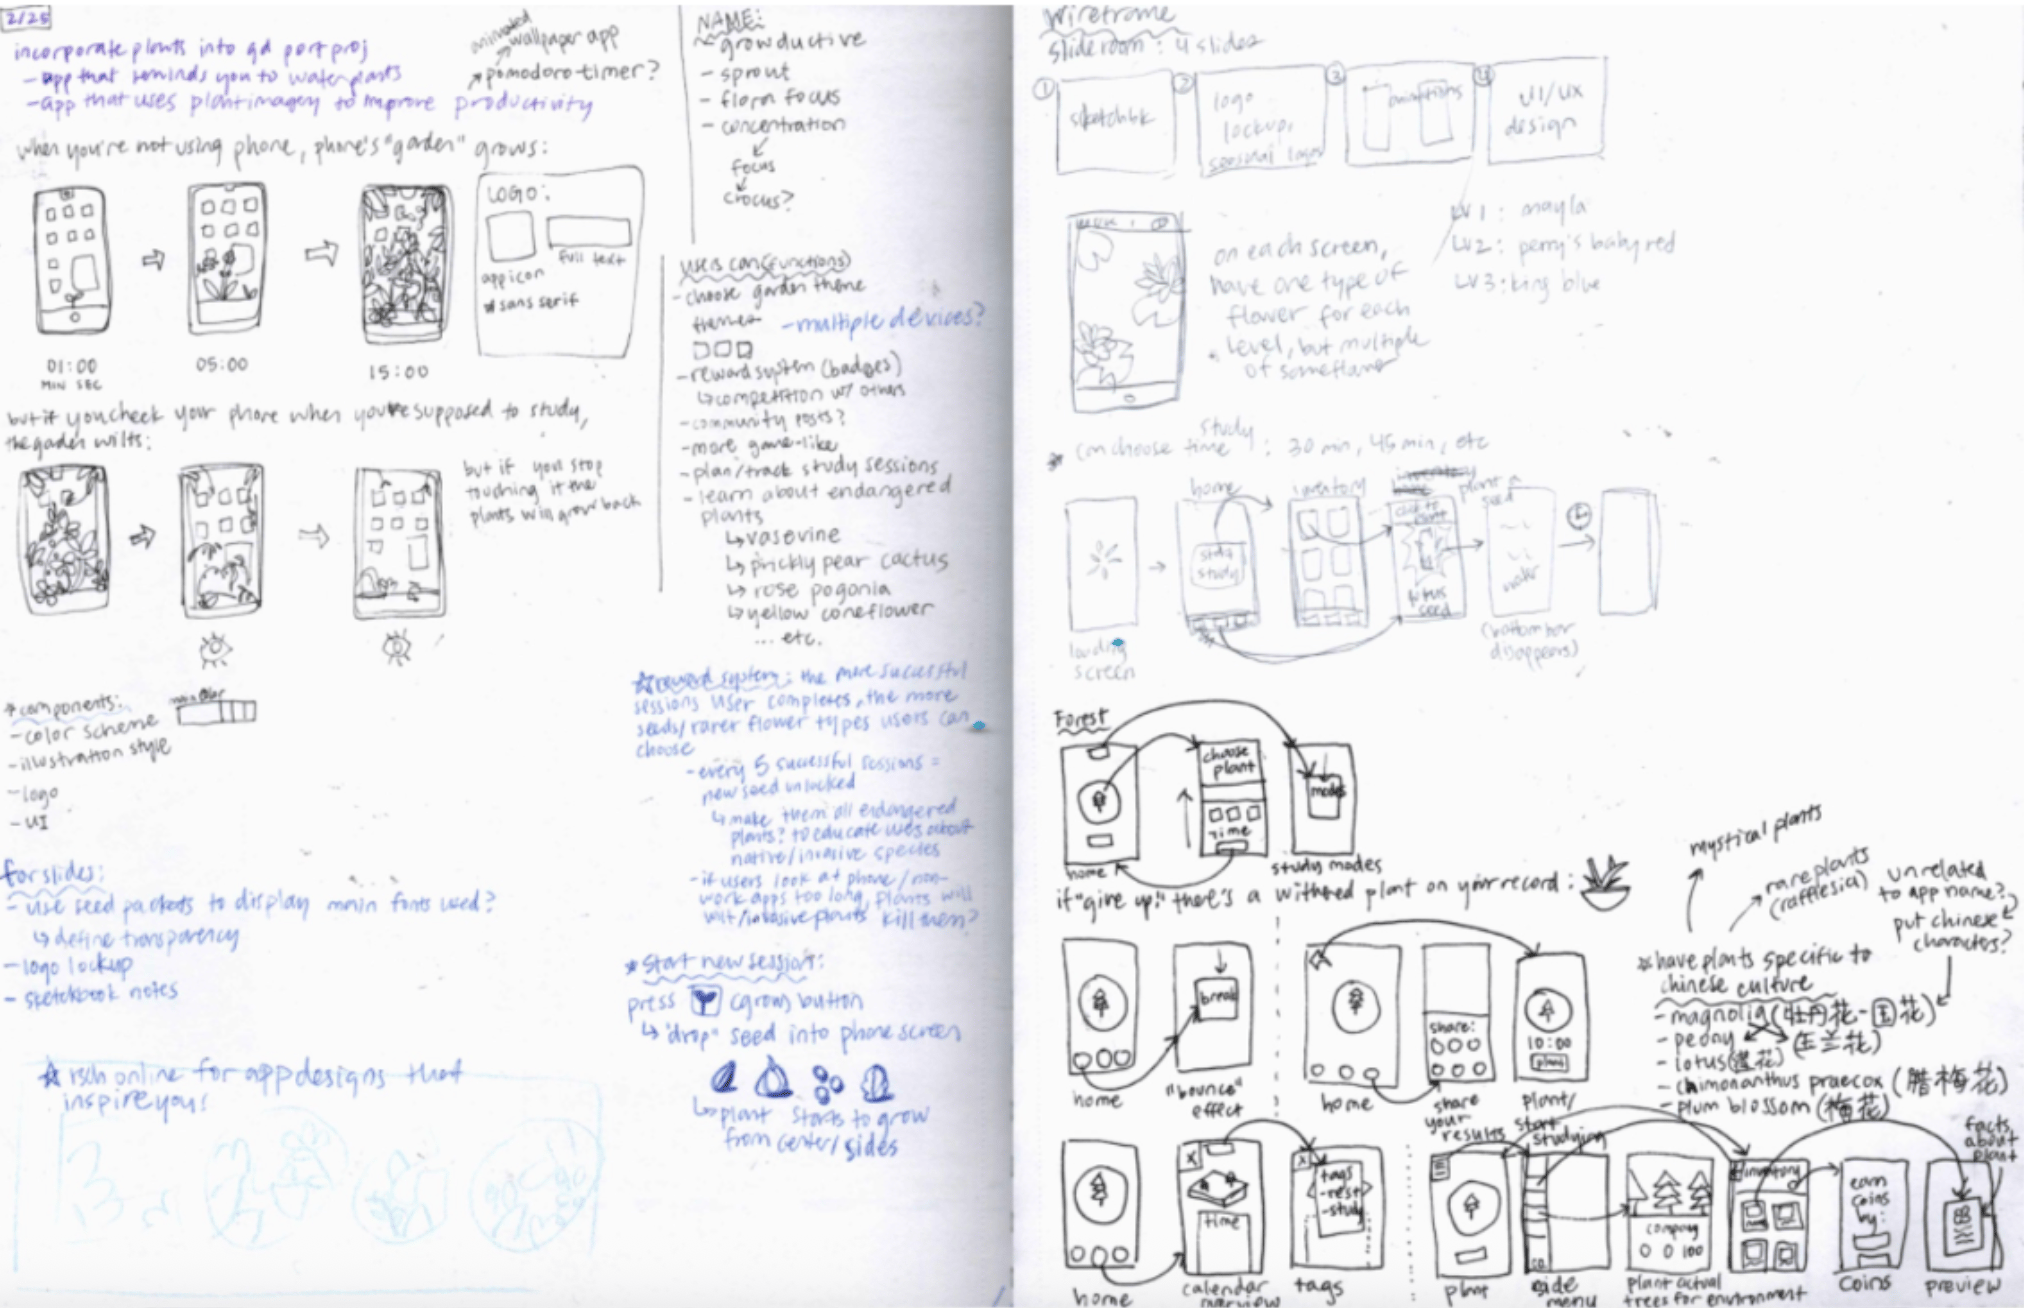 2/25
incorporate plants into gd port proj
- app that reminds you to water plants
- app that uses plant imagery to improve productivity
animated
wallpaper app
pomodoro timer?
when you're not using phone, phone's "garden" grows:
01:00
MIN SEC
05:00
15:00
LOGO:
app icon
full text
* sans serif
but if you check your phone when you're supposed to study,
the garden wilts:
but if you stop
touching it the
plants will grow back
* components:
main color
- color scheme
- illustration style
- logo
- UI
for slides:
- use seed packets to display main fonts used?
↳ define transparency
- logo lockup
- sketchbook notes
☆ rsch online for app designs that
inspire you!
NAME:
~ growductive
- sprout
- flora focus
- concentration
focus
crocus?
users can (functions)
- choose garden theme
themes
- multiple devices?
- reward system (badges)
↳ competition w/ others
- community posts?
- more game-like
- plan/track study sessions
- learn about endangered
plants
↳ vasevine
↳ prickly pear cactus
↳ rose pogonia
↳ yellow coneflower
... etc.
☆ reward system: the more successful
sessions user completes, the more
seeds/rarer flower types users can
choose
- every 5 successful sessions =
new seed unlocked
↳ make them all endangered
plants? to educate users about
native/invasive species
- if users look at phone/non-
work apps too long, plants will
wilt/invasive plants kill them?
* start new session:
press (grow) button
↳ "drop" seed into phone screen
↳ plant starts to grow
from center/sides
Wireframe
slideroom: 4 slides
① sketchbk
② logo
lockup,
seasonal logos
③ animations
④ UI/UX
design
on each screen,
have one type of
flower for each
level, but multiple
of same flower
LV 1: mayla
LV2: perry's baby red
LV3: king blue
* can choose study time: 30 min, 45 min, etc
loading
screen
home
study
inventory
plant a
seed
click to
plant
lotus
seed
water
(bottom bar
disappears)
Forest
home
choose
plant
time
modes
study modes
if "give up!" there's a withered plant on your record:
home
break
"bounce"
effect
home
share:
share
your
results
10:00
plant
plant/
start
studying
mystical plants
rare plants
(rafflesia)
unrelated
to app name?
put chinese
characters?
* have plants specific to
chinese culture
- magnolia (牡丹花-国花)
- peony (玉兰花)
- lotus
- chimonanthus praecox (腊梅花)
- plum blossom (梅花)
home
time
calendar
overview
tags
- rest
- study
tags
plant
side
menu
company
100
plant actual
trees for environment
inventory
earn
coins
by:
coins
facts
about
plant
preview